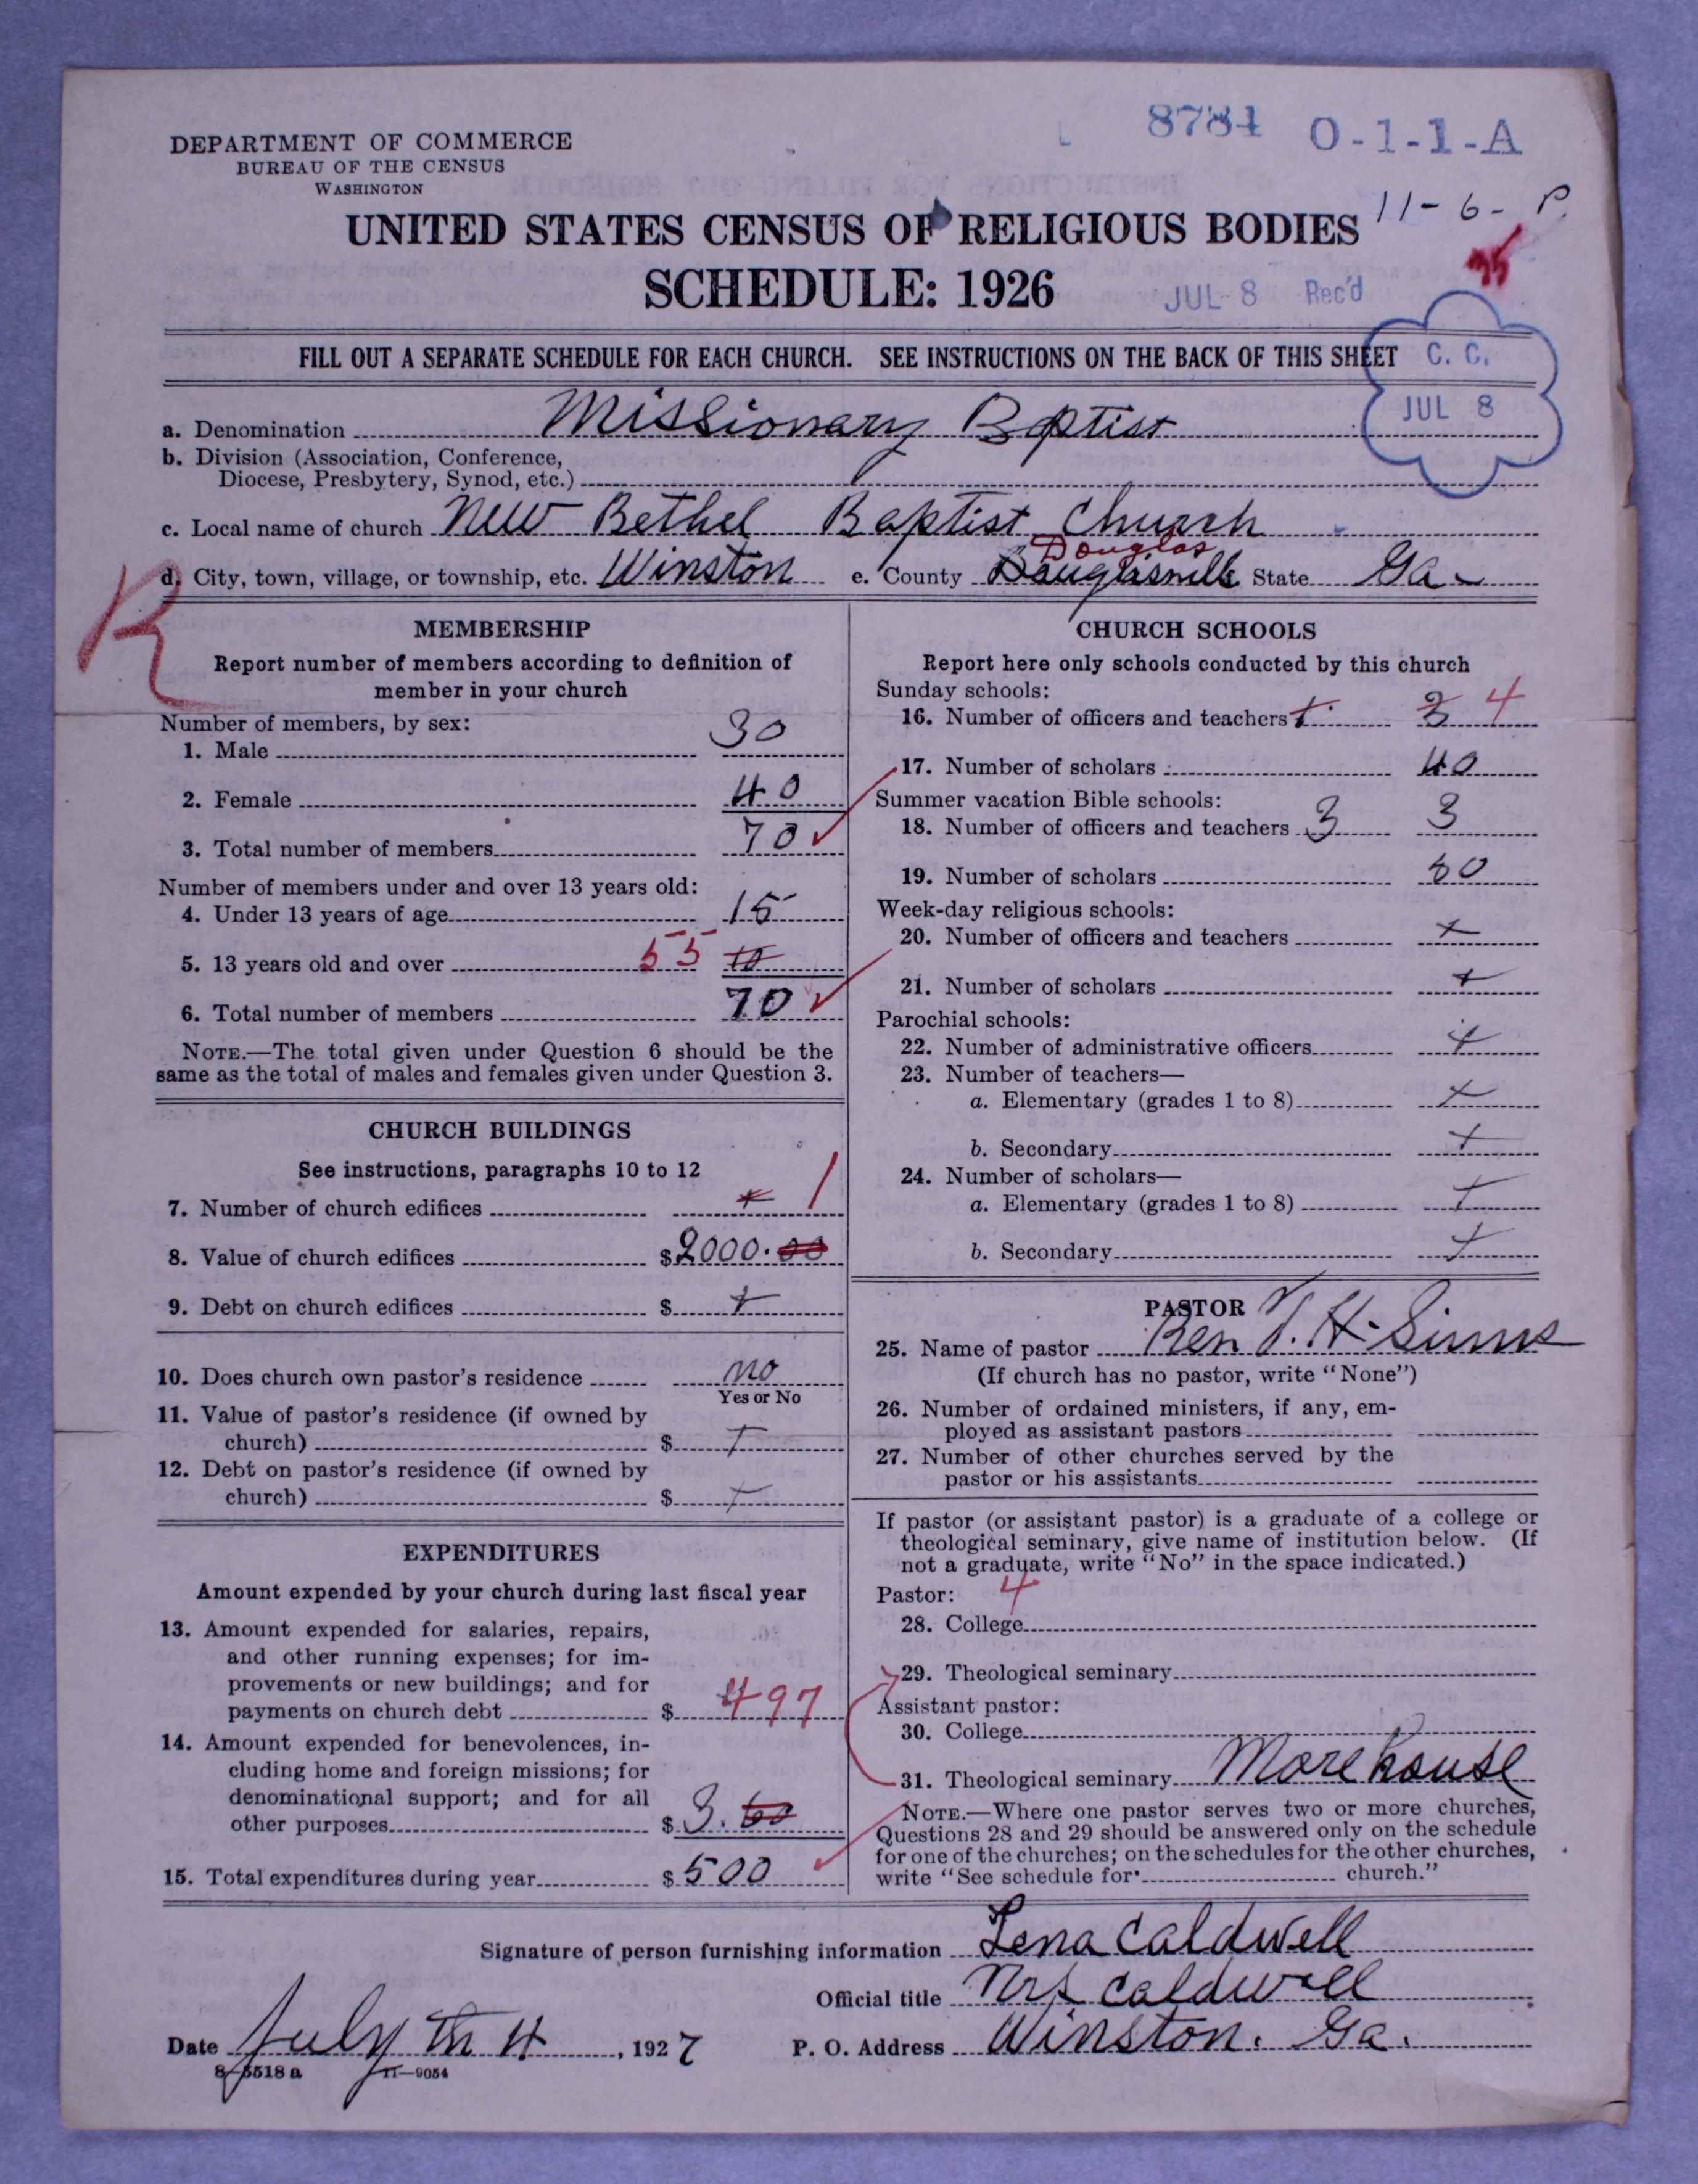 8784 O-1-1-A
DEPARTMENT OF COMMERCE
BUREAU OF THE CENSUS
WASHINGTON
11-6-P.
UNITED STATES CENSUS OF RELIGIOUS BODIES
SCHEDULE: 1926
JUL 8 Rec'd
FILL OUT A SEPARATE SCHEDULE FOR EACH CHURCH. SEE INSTRUCTIONS ON THE BACK OF THIS SHEET
C. C.
JUL 8
a. Denomination Missionary Baptist
b. Division (Association, Conference,
Diocese, Presbytery, Synod, etc.)
c. Local name of church New Bethel Baptist Church
Douglas
d. City, town, village, or township, etc. Winston e. County Douglasville State Ga.
R
MEMBERSHIP
Report number of members according to definition of
member in your church
Number of members, by sex:
1. Male 30
2. Female 40
3. Total number of members 70
Number of members under and over 13 years old:
4. Under 13 years of age 15
5. 13 years old and over 55 10
6. Total number of members 70
NOTE.—The total given under Question 6 should be the
same as the total of males and females given under Question 3.
CHURCH BUILDINGS
See instructions, paragraphs 10 to 12
7. Number of church edifices + 1
8. Value of church edifices $2000.00
9. Debt on church edifices $ +
10. Does church own pastor's residence no
Yes or No
11. Value of pastor's residence (if owned by
church) $ +
12. Debt on pastor's residence (if owned by
church) $ +
EXPENDITURES
Amount expended by your church during last fiscal year
13. Amount expended for salaries, repairs,
and other running expenses; for im-
provements or new buildings; and for
payments on church debt $ 497
14. Amount expended for benevolences, in-
cluding home and foreign missions; for
denominational support; and for all
other purposes $ 3.60
15. Total expenditures during year $ 500
CHURCH SCHOOLS
Report here only schools conducted by this church
Sunday schools:
16. Number of officers and teachers 3 4
17. Number of scholars 40
Summer vacation Bible schools:
18. Number of officers and teachers 3 3
19. Number of scholars
Week-day religious schools:
20. Number of officers and teachers +
21. Number of scholars +
Parochial schools:
22. Number of administrative officers +
23. Number of teachers—
a. Elementary (grades 1 to 8) +
b. Secondary +
24. Number of scholars—
a. Elementary (grades 1 to 8) +
b. Secondary +
PASTOR
25. Name of pastor Rev J. H. Simms
(If church has no pastor, write "None")
26. Number of ordained ministers, if any, em-
ployed as assistant pastors
27. Number of other churches served by the
pastor or his assistants
If pastor (or assistant pastor) is a graduate of a college or
theological seminary, give name of institution below. (If
not a graduate, write "No" in the space indicated.)
Pastor: 4
28. College
29. Theological seminary
Assistant pastor:
30. College
31. Theological seminary Morehouse
NOTE.—Where one pastor serves two or more churches,
Questions 28 and 29 should be answered only on the schedule
for one of the churches; on the schedules for the other churches,
write "See schedule for church."
Signature of person furnishing information Lena Caldwell
Official title Mrs Caldwell
Date July th 4, 1927 P. O. Address Winston. Ga.
8-5518 a 11-9054